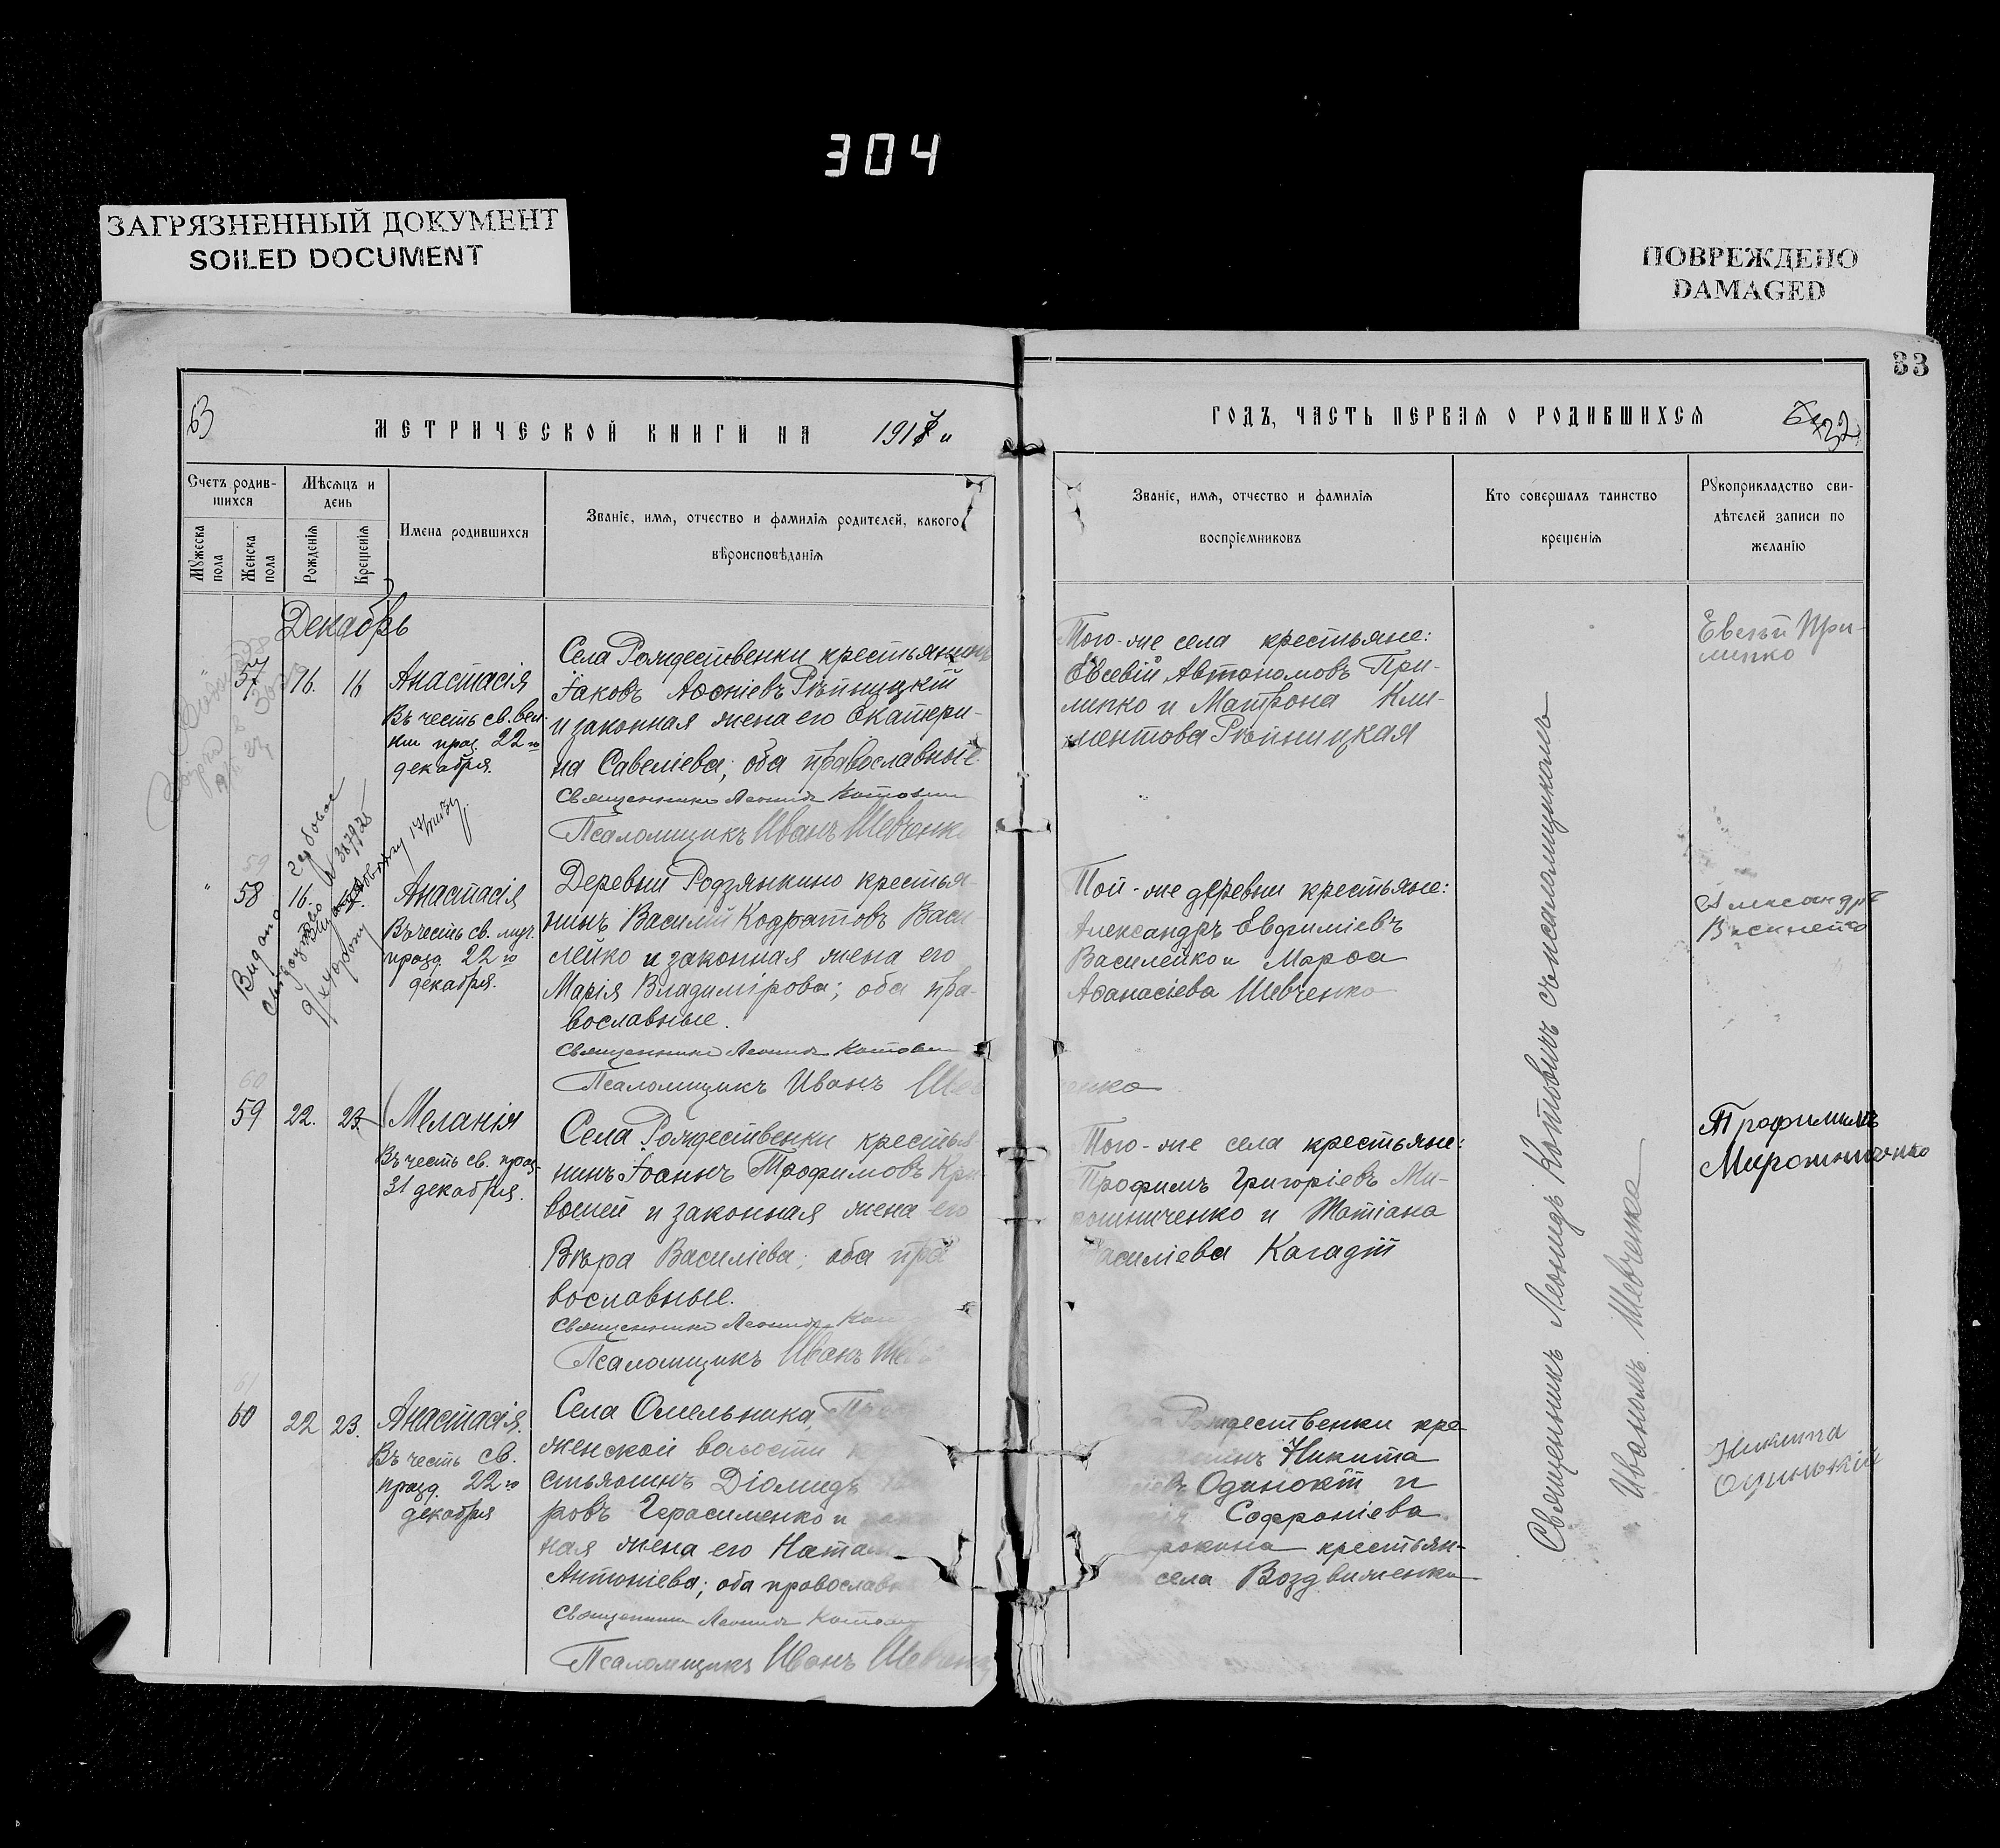 304
ЗАГРЯЗНЕННЫЙ ДОКУМЕНТ
SOILED DOCUMENT
ПОВРЕЖДЕНО
DAMAGED
33
63
МЕТРИЧЕСКОЙ КНИГИ НА 1917 и
ГОДЪ, ЧАСТЬ ПЕРВАЯ О РОДИВШИХСЯ
32
Счетъ родив-
шихся
Мужеска пола
Женска пола
Мѣсяцъ и
день
Рожденія
Крещенія
Имена родившихся
Званіе, имя, отчество и фамилія родителей, какого
вѣроисповѣданія
Званіе, имя, отчество и фамилія
воспріемниковъ
Кто совершалъ таинство
крещенія
Рукоприкладство сви-
дѣтелей записи по
желанію
Декабрь
37 16. 16 Анастасія
Въ честь св. вел.
празд. 22го
декабря.
Села Рождественки крестьянинъ
Іаковъ Аѳоніевъ Рѣпницкій
и законная жена его Екатери-
на Савеліева; оба православные
Священникъ Леонидъ Котович
Псаломщикъ Иванъ Шевченк
Того-же села крестьяне:
Евсевій Автономовъ При-
липко и Матрона Кли-
ментова Рѣпницкая
Евсевій При-
липко
59
58 16. Анастасія
Въ честь св. муч.
празд. 22го
декабря.
Деревни Родзянкино крестья-
нинъ Василій Кодратовъ Васи
лейко и законная жена его
Марія Владимірова; оба пра-
вославные.
Священникъ Леонидъ Котович
Псаломщикъ Иванъ Шевченко
Той-же деревни крестьяне:
Александръ Евфиміевъ
Василейко и Марѳа
Аѳанасіева Шевченко
Александръ
Василейко
Видано
60
59 22. 23 Меланія
Въ честь св. празд.
31 декабря.
Села Рождественки крестья
нинъ Іоаннъ Трофимовъ Кри
вошей и законная жена его
Вѣра Василіева; оба пра
вославные.
Священникъ Леонидъ Кот
Псаломщикъ Иванъ Шев
Того-же села крестьяне:
Трофимъ Григоріевъ Ми-
рошниченко и Татіана
Василіева Кагадій
Трофимъ
Мирошниченко
61
60 22 23. Анастасія.
Въ честь св.
празд. 22го
декабря
Села Омельника,
женской волости
стьянинъ Діомидъ
ровъ Герасименко и
ная жена его Натал
Антоніева; оба православн
Священникъ Леонидъ Котович
Псаломщикъ Иванъ Шевченк
Рождественки кре
Никита
Одинокій и
Софроніева
крестьян-
села Воздвиженки
Никита
Одинокій
Священникъ Леонидъ Котовичъ съ псаломщикомъ
Иваномъ Шевченко